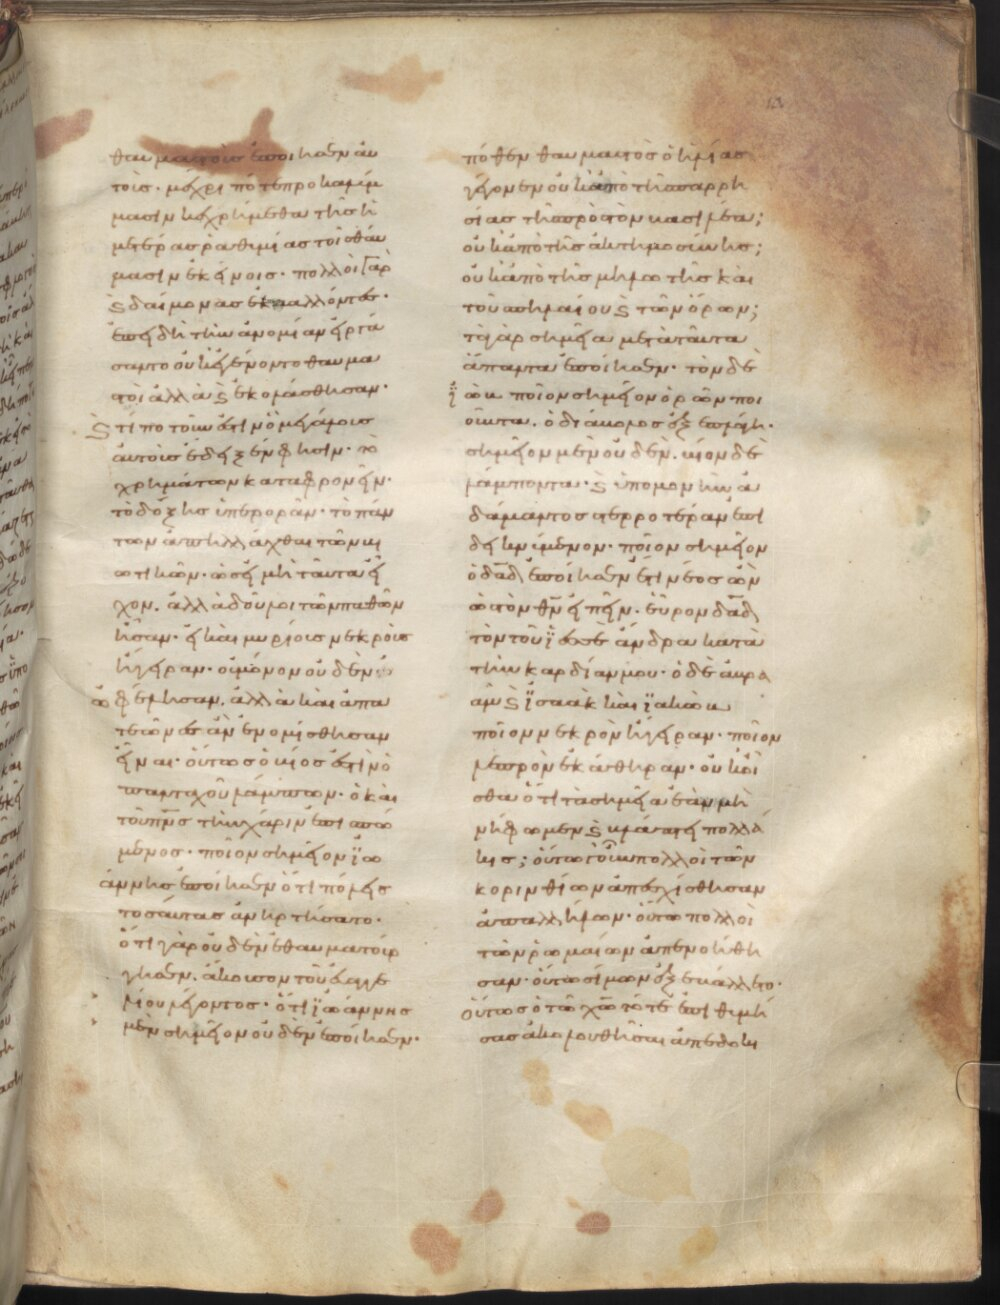 θαυμαστοὺς ἐποίησεν αὐ
τούς· μέχρι πότε προκαλύμ
μασιν κεχρήμεθα τῆς ἡ
μετέρας ραθυμίας τοῖς θαύ
μασιν ἐκείνοις· πολλοὶ γὰρ
ϗ δαίμονας ἐκβαλλόντες·
ἐπειδὴ τὴν ἀνομίαν εἰργά
σαντο οὐκ ἐγένοντο θαυμα
στοὶ ἀλλὰ ϗ ἐκολάσθησαν·
ϗ τί ποτ οὖν ἐστιν ὃ μεγάλους
αὐτοὺς ἔδειξεν φησίν· τὸ
χρημάτων καταφρονεῖν·
τὸ δόξης ὑπερορᾶν· τὸ πάν
των ἀπηλλάχθαι τῶν βι
ωτικῶν· ὡς εἴ μὴ ταῦτα εἶ
χον, ἀλλὰ δοῦλοι τῶν παθῶν
ἦσαν· εἰ καὶ μυρίους νεκροὺς
ἤγειραν· οὐ μόνον οὐδὲν
ὠφέλησαν, ἀλλὰ καὶ ἀπα
τεῶνες ἂν ἐνομίσθησαν
εἶναι· οὕτως ὁ βίος ἐστὶν ὁ
πανταχοῦ λάμπων· ὁ καὶ
τοῦ πν̅ς τὴν χάριν ἐπισπώ
μενος· ποῖον σημεῖον ϊω
άννης ἐποίησεν ὅτι πόλεις
τοσαύτας ἀνηρτήσατο·
ὅτι γὰρ οὐδὲν ἐθαυματούρ
γησεν, ἄκουσον τοῦ εὐαγγε
λίου λέγοντος· ὅτι ϊωάννης
μὲν σημεῖον οὐδὲν ἐποίησεν·
πόθεν θαυμαστὸς ὁ ἡλίας
γέγονεν οὐκ ἀπὸ τῆς παρρη
σίας τῆς πρὸς τὸν βασιλέα;
οὐκ ἀπὸ τῆς ἀκτημοσύνης;
οὐκ ἀπὸ τῆς μηλωτῆς καὶ
τοῦ σπηλαίου ϗ τῶν ὁρῶν;
τὰ γὰρ σημεῖα μετὰ ταῦτα
ἅπαντα ἐποίησεν· τὸν δὲ
ϊὼβ ποῖον σημεῖον ὁρῶν ποι
οῦντα, ὁ διάβολος ἐξεπλάγη·
σημεῖον μὲν οὐδὲν, βίον δὲ
λάμποντα· ϗ ὑπομονὴν ἀ
δάμαντος στερροτέραν ἐπι
δεικνύμενον· ποῖον σημεῖον
ὁ δα̅δ̅ ἐποίησεν ἔτι νέος ὢν
ὡς τὸν θν̅ εἰπεῖν· εὗρον δα̅δ̅
τὸν τοῦ ϊεσσὲ ἄνδρα κατὰ
τὴν καρδίαν μου· ὁ δὲ ἀβρα
ὰμ ϗ ϊσαὰκ καὶ ϊακὼβ
ποῖον νεκρὸν ἤγειραν· ποῖον
λεπρὸν ἐκάθηραν· οὐκ οἶ
σθα ὅτι τὰ σημεῖα ἐὰν μὴ
νήφωμεν ϗ βλάπτει πολλά
κις; οὕτω γοῦν πολλοὶ τῶν
κορινθίων ἀπεσχίσθησαν
ἀπ ἀλλήλων· οὕτω πολλοὶ
τῶν ρωμαίων ἀπενοήθη
σαν· οὕτω σίμων ἐξεβάλλετο·
οὕτως ὁ τῶ χω̅ τότε ἐπιθυμή
σας ἀκολουθῆσαι ἀπεδοκι